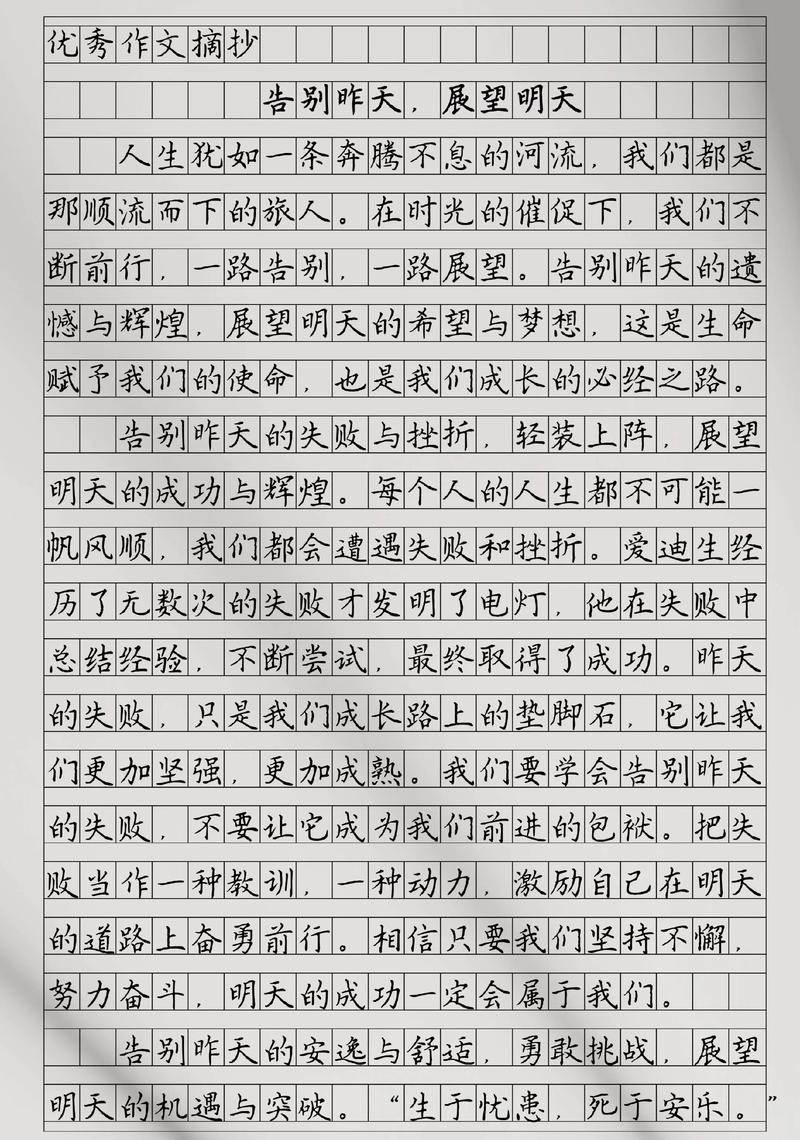 优秀作文摘抄
告别昨天，展望明天
人生犹如一条奔腾不息的河流，我们都是
那顺流而下的旅人。在时光的催促下，我们不
断前行，一路告别，一路展望。告别昨天的遗
憾与辉煌，展望明天的希望与梦想，这是生命
赋予我们的使命，也是我们成长的必经之路。
告别昨天的失败与挫折，轻装上阵，展望
明天的成功与辉煌。每个人的人生都不可能一
帆风顺，我们都会遭遇失败和挫折。爱迪生经
历了无数次的失败才发明了电灯，他在失败中
总结经验，不断尝试，最终取得了成功。昨天
的失败，只是我们成长路上的垫脚石，它让我
们更加坚强，更加成熟。我们要学会告别昨天
的失败，不要让它成为我们前进的包袱。把失
败当作一种教训，一种动力，激励自己在明天
的道路上奋勇前行。相信只要我们坚持不懈，
努力奋斗，明天的成功一定会属于我们。
告别昨天的安逸与舒适，勇敢挑战，展望
明天的机遇与突破。“生于忧患，死于安乐。”